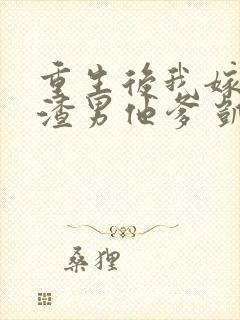 重生後我嫁
渣男他爹凱
桑狸